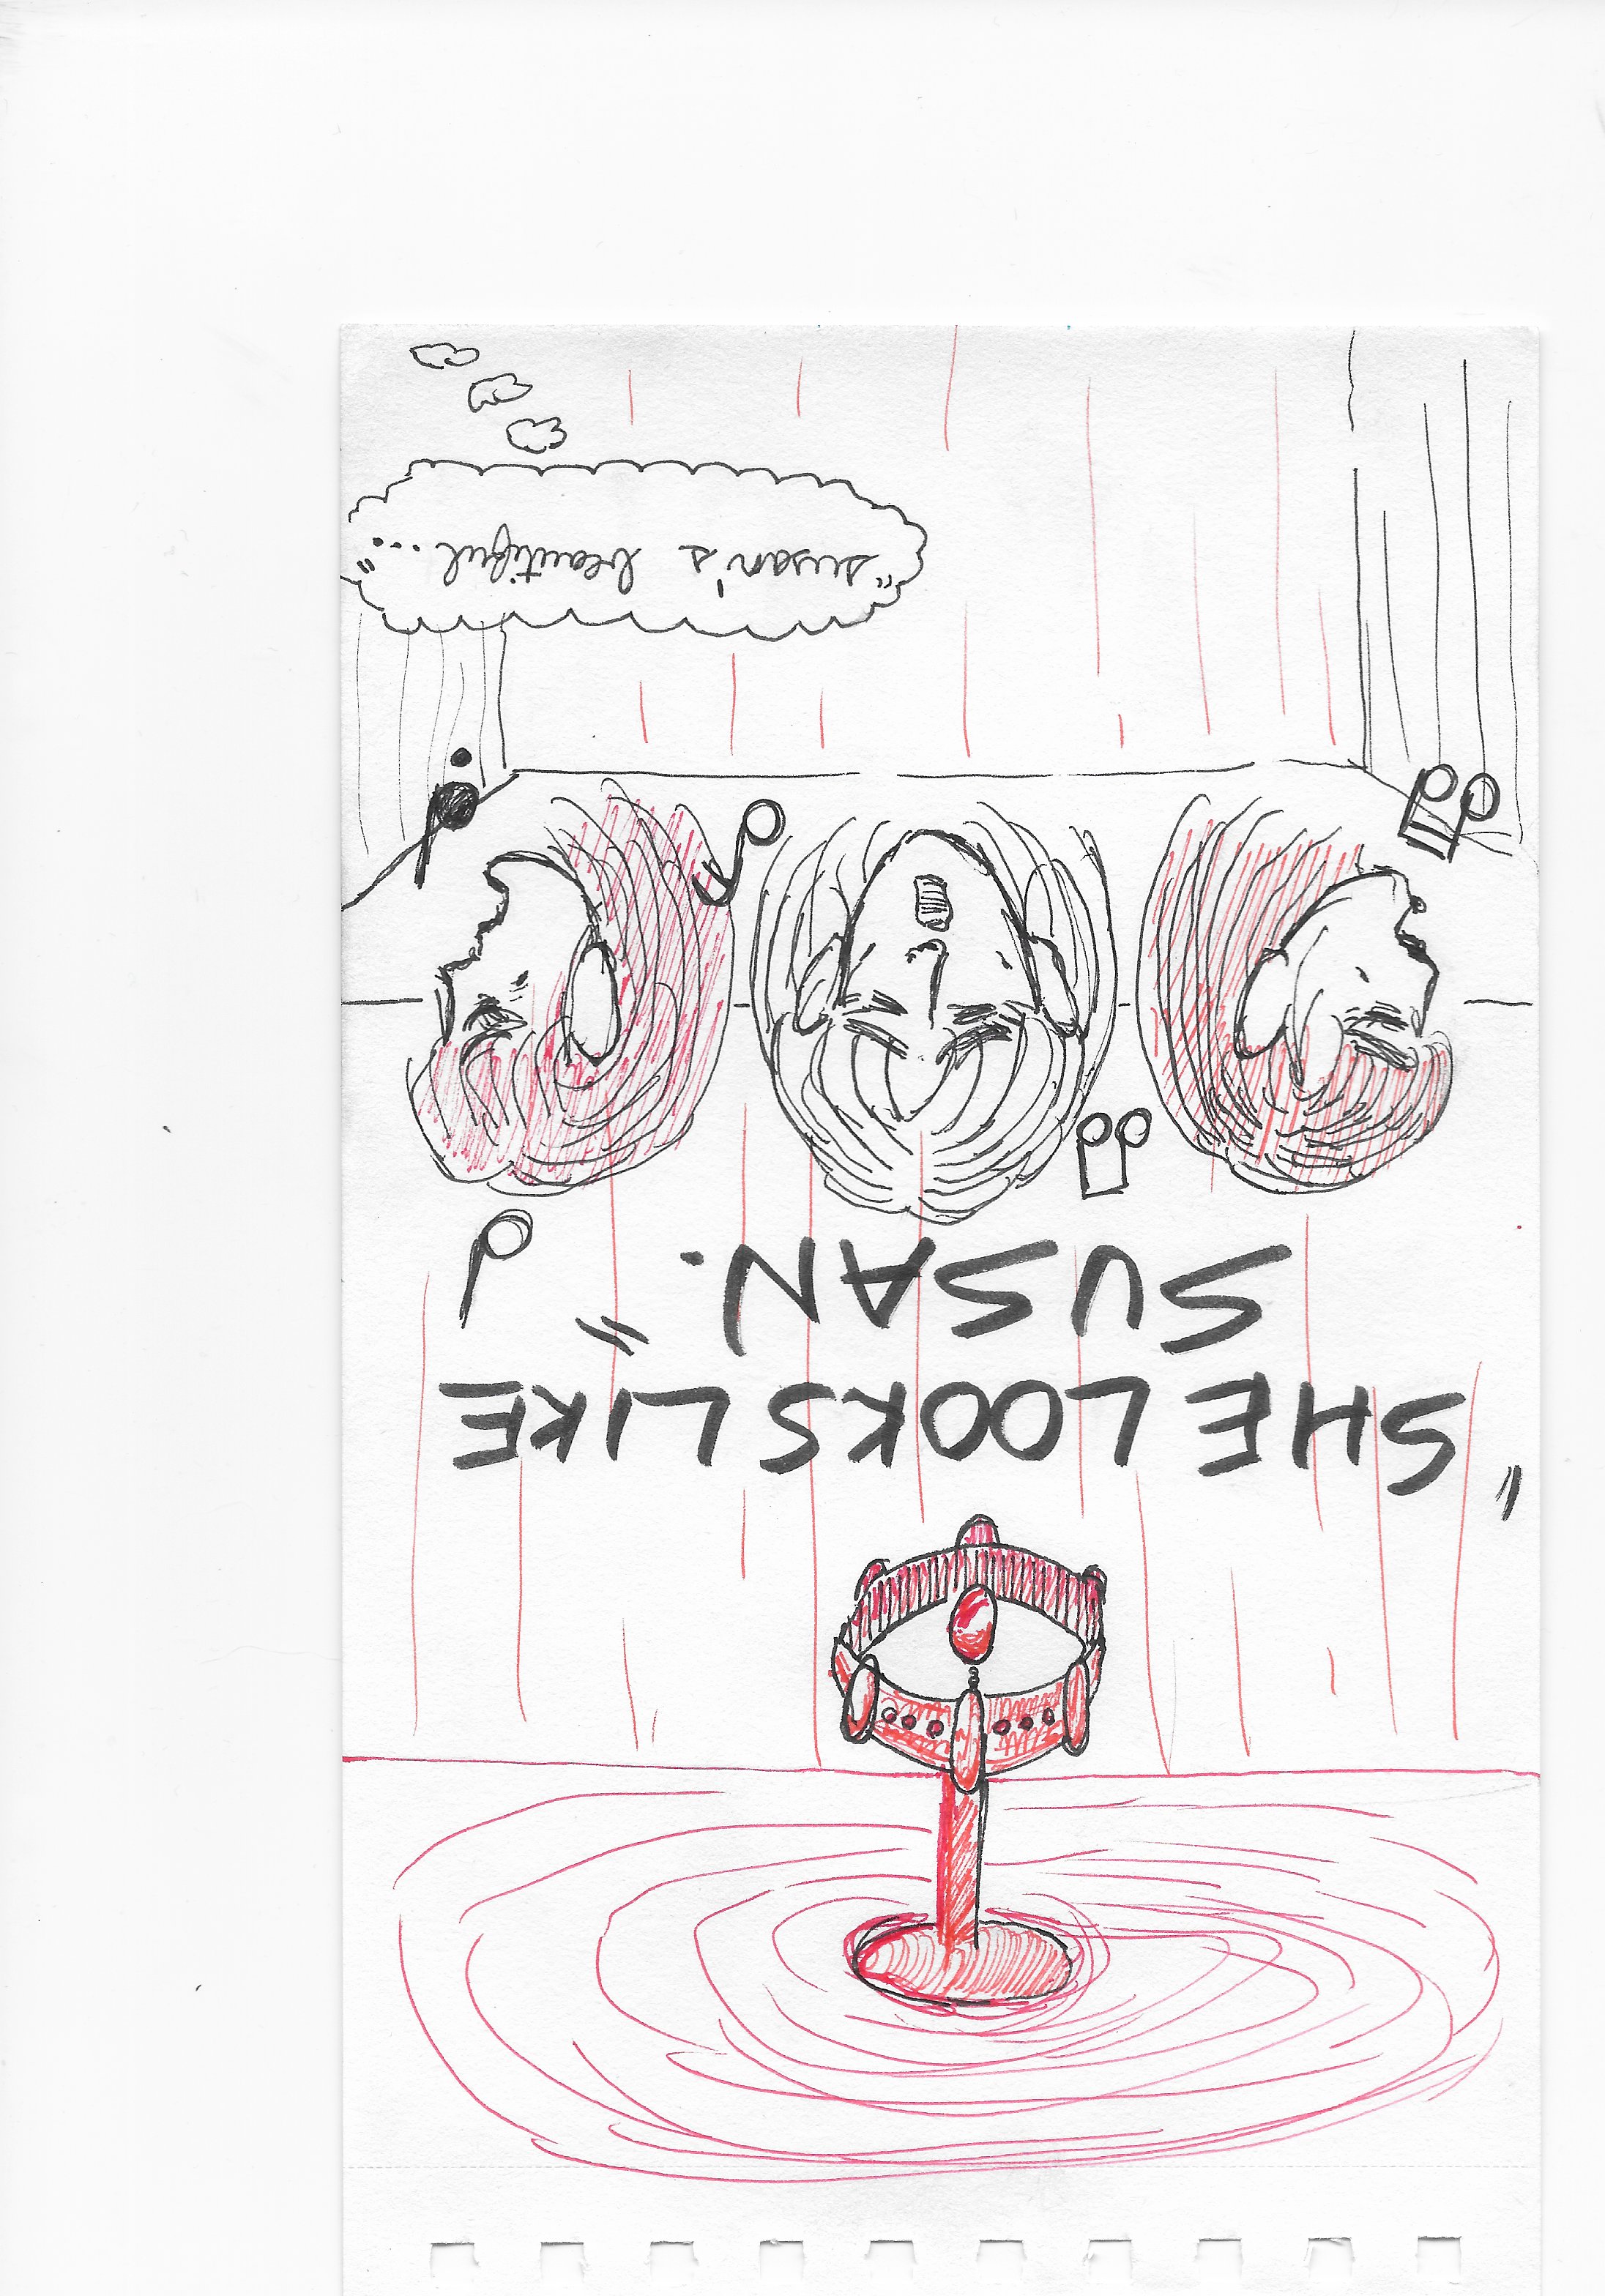 "SHE LOOKS LIKE
SUSAN."
"susan's beautiful..."